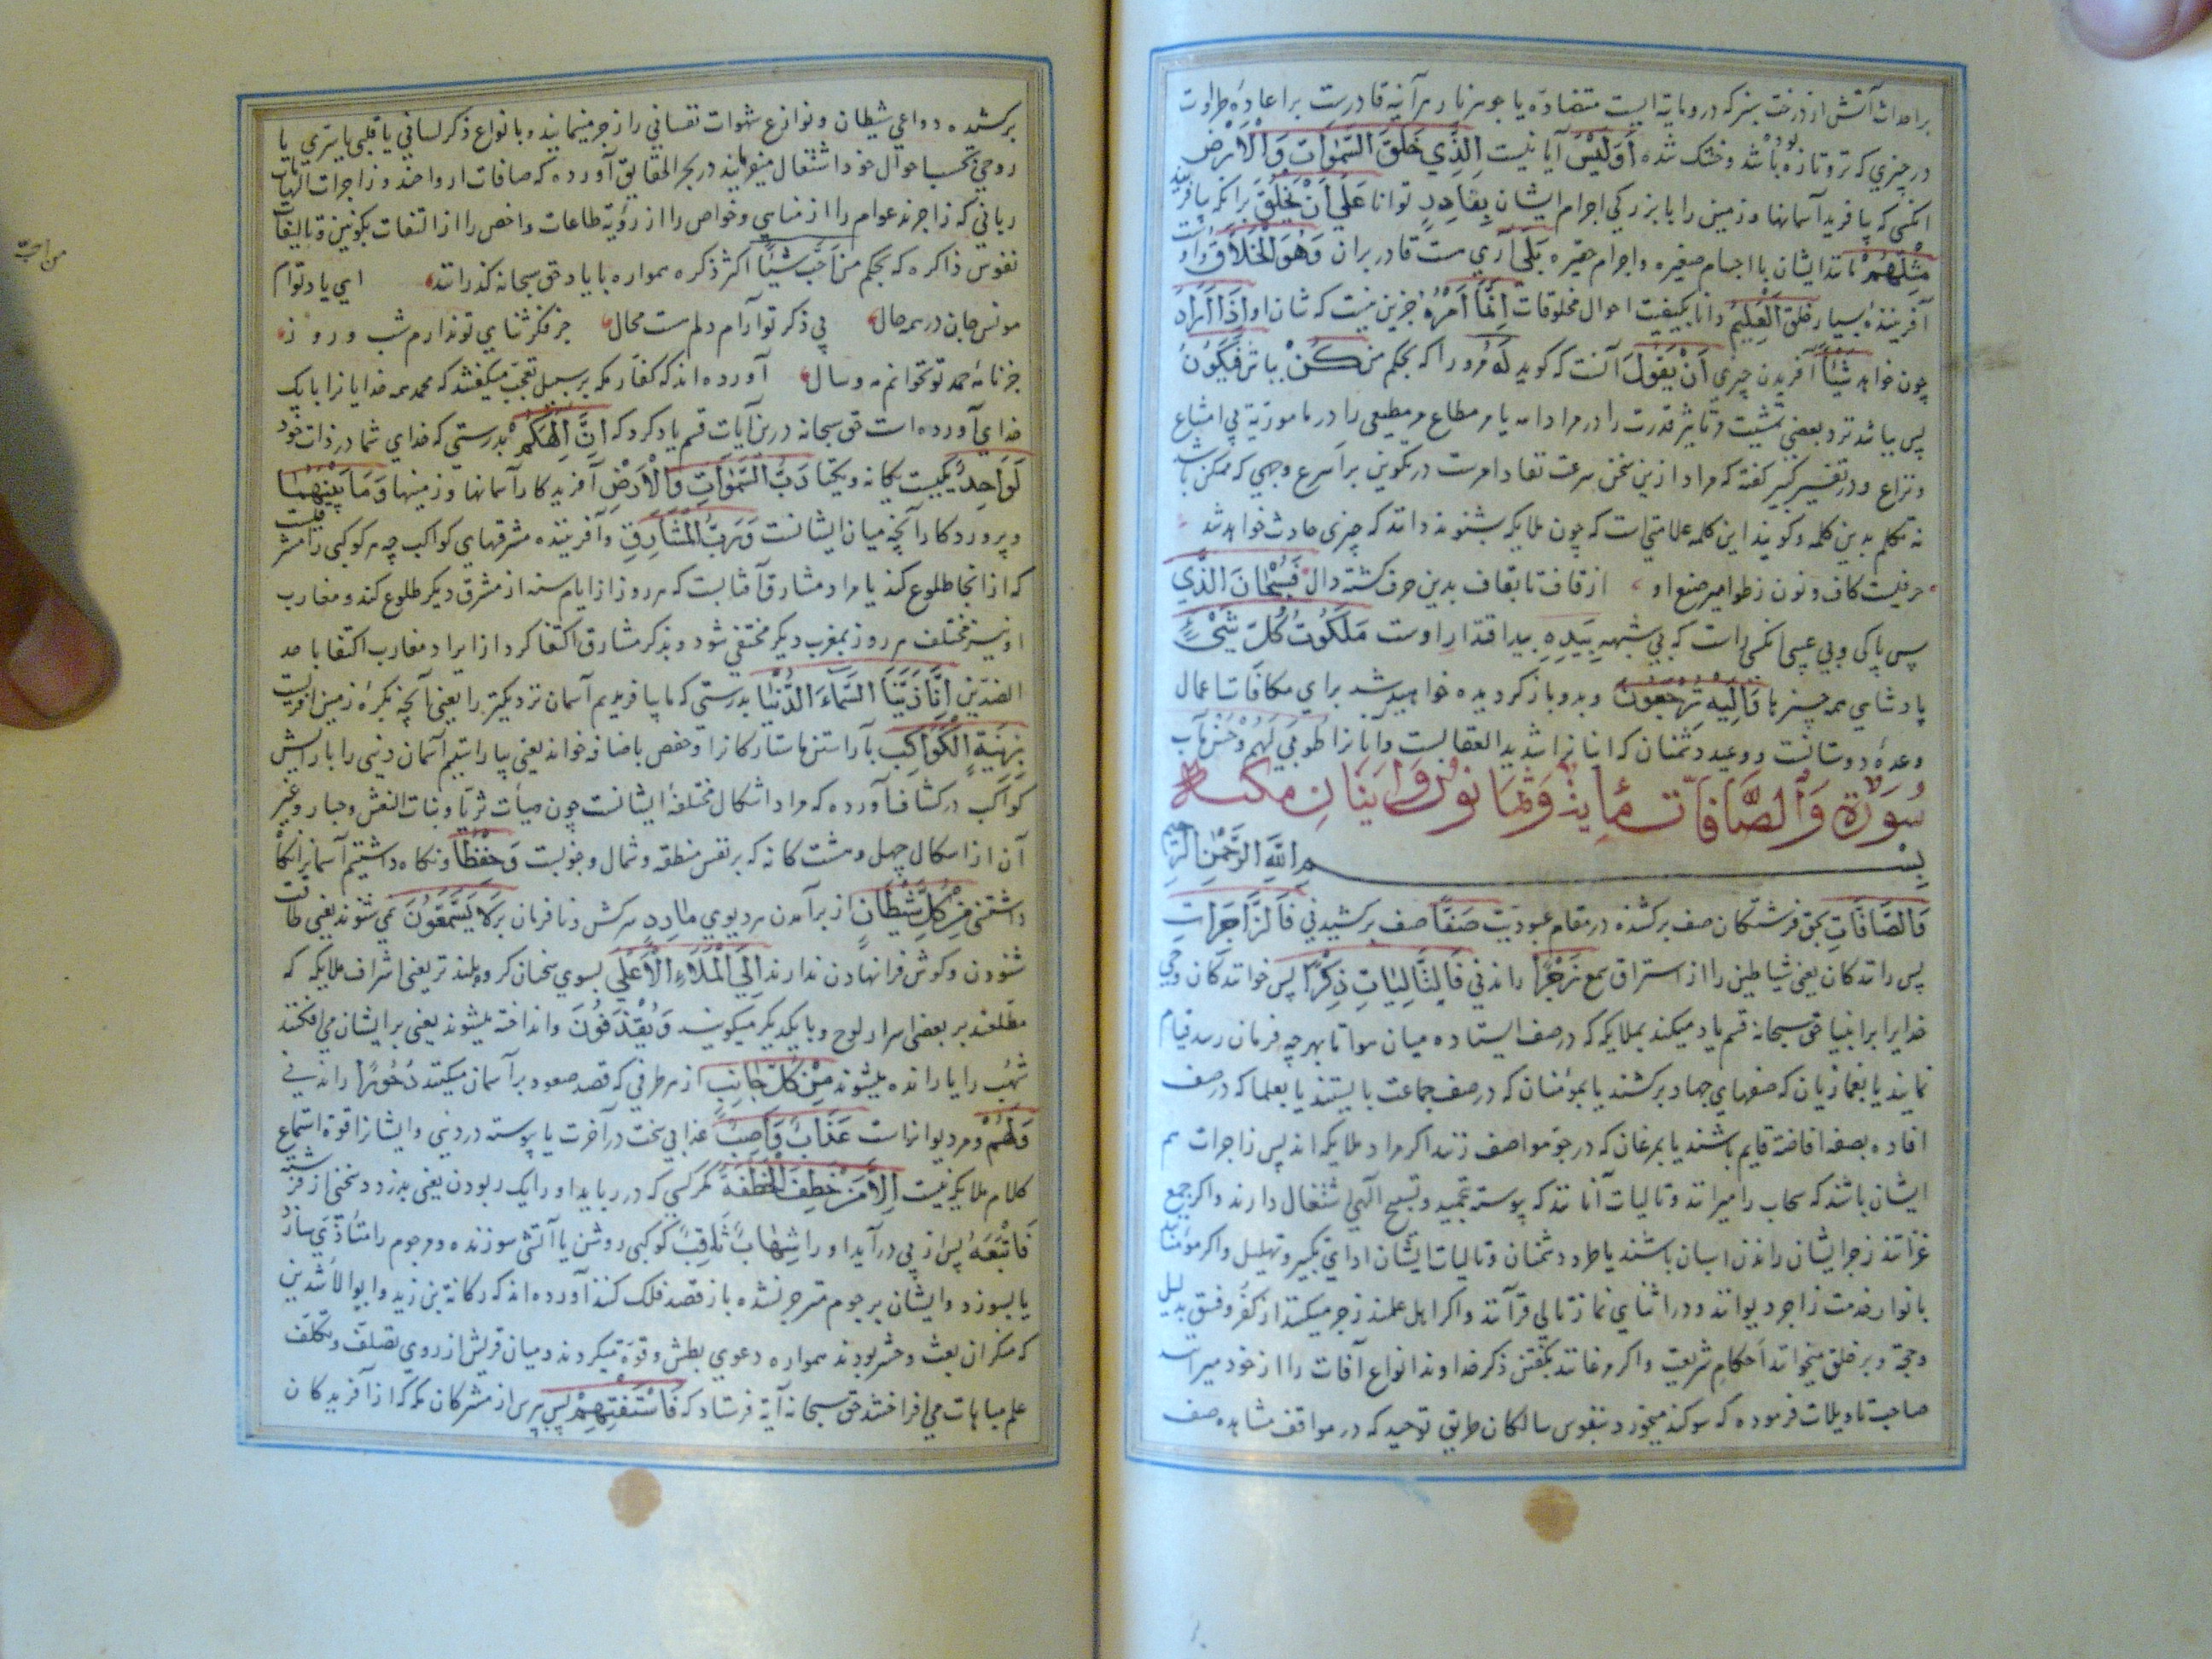 بر احداث آتش از درخت سبز که درو مایه ایست متضاده یا جوهر نار هر آینه قادرست بر اعادهٔ طراوت
در چیزی که تر و تازه بوده باشد و خشک شده أَوَلَيْسَ آیا نیست الَّذِي خَلَقَ السَّمٰوَاتِ وَالْأَرْضَ
آنکسی که بیافرید آسمانها و زمین را با بزرگی اجرام ایشان بِقَادِرٍ توانا عَلَى أَنْ يَخْلُقَ برانکه بیافریند
مِثْلَهُمْ مانند ایشان با اجسام صغیره و اجرام حقیره بَلَى آری هست قادر بران وَهُوَ الْخَلَّاقُ و اوست
آفرینندهٔ بسیار خلق الْعَلِيمُ دانا بکیفیت احوال مخلوقات إِنَّمَا أَمْرُهُ جز این نیست که شان او إِذَا أَرَادَ
چون خواهد شَيْئًا آفریدن چیزی أَنْ يَقُولَ آنست که گوید لَهُ مرورا که بحکم من كُنْ بباش فَيَكُونُ
پس بباشد نزد بعضی تمثیلست تاثیر قدرت را در مراد او به یا مر مطاع مر مطیعی را در مامور به بی امتناع
و نزاع و در تفسیر کبیر گفته که مراد ازین سخن سرعت نفاد امرست در تکوین بر اسرع وجهی که ممکن باشد
نه تکلم بدین کلمه و گویند این کلمه علامتی است که چون ملایکه بشنوند دانند که چیزی حادث خواهد شد
حرفیست کاف و نون ز طوامیر صنع او از قاف تا بقاف بدین حرف گشته دال فَسُبْحَانَ الَّذِي
پس پاکی و بی عیبی آنکسی راست که بی شبهه بِيَدِهِ بید اقتدار اوست مَلَكُوتُ كُلِّ شَيْءٍ
پادشاهی همه چیزها وَإِلَيْهِ تُرْجَعُونَ و بدو باز گردیده خواهید شد برای مکافات اعمال
وعدهٔ دوستانست و وعید دشمنان که اینانرا شدید العقابست و آنانرا طوبی لهم و حسن مآب
سُورَةُ وَالصَّافَّات مِأيَةٌ وَثَمَانُونَ وَاٰيَتَانِ مكيّة
بِسْمِ اللَّهِ الرَّحْمٰنِ الرَّحِيمِ
وَالصَّافَّاتِ بحق فرشتگان صف برکشنده در مقام عبودیت صَفًّا صف برکشیدنی فَالزَّاجِرَاتِ
پس رانندگان یعنی شیاطین را از استراق سمع زَجْرًا راندنی فَالتَّالِيَاتِ ذِكْرًا پس خوانندگان وحی
خدایرا بر انبیا حق سبحانه قسم یاد میکند بملایکه که در صف ایستاده میان هوا تا بهر چه فرمان رسد قیام
نمایند یا بغازیان که صفهای جهاد برکشند یا بمومنان که در صف جماعت بایستند یا بعلما که در صف
افاده بصفه افاضه قایم باشند یا بمرغان که در جو هوا صف زنند اکر مراد ملایکه اند پس زاجرات هم
ایشان باشند که سحاب را میرانند و تالیات آنانند که پیوسته بتمجید و تسبیح الهی اشتغال دارند و اکر جمع
غزاتند زجر ایشان راندن اسبان باشند یا طرد دشمنان و تالیات ایشان ادای تکبیر و تهلیل و اکر مؤمنانند
بانوار خدمت زاجر دیوانند و در اثنای نماز تالی قرآنند و اکر اهل علمند زجر میکنند از کفر و فسق بدلیل
و حجة و بر خلق میخوانند احکام شریعت و اکر مرغانند بگفتن ذکر خداوند انواع آفات را از خود میرانند
صاحب تاویلات فرموده که سوگند میخورد بنفوس سالکان طریق توحید که در مواقف مشاهده صف
برکشیده دواعی شیطان و نوازع شهوات نفسانی را زجر مینمایند و بانواع ذکر لسانی یا قلبی یا سری یا
روحی بحسب احوال خود اشتغال میفرمایند در بحر الحقایق آورده که صافات ارواحند و زاجرات الهامات
ربانی که زاجرند عوام را از مناهی و خواص را از رؤیة طاعات و اخص را از التفات بکونین و تالیات
نفوس ذاکره که بحکم من احب شیئا اکثر ذکره همواره با یاد حق سبحانه گذرانند ای یاد توام
مونس جان در همه حال بی ذکر تو آرام دلم هست محال جز فکر ثنای تو ندارم شب و روز
جز نامهٔ حمد تو نخوانم مه و سال آورده اند که کفار مکه بر سبیل تعجب میگفتند که محمد همه خدایانرا با یک
خدای آورده است حق سبحانه درین آیات قسم یاد کرد که إِنَّ إِلٰهَكُمْ بدرستی که خدای شما در ذات خود
لَوَاحِدٌ یکیست یگانه و یکتا رَبُّ السَّمٰوَاتِ وَالْأَرْضِ آفریدگار آسمانها و زمینها وَمَا بَيْنَهُمَا
و پروردگار آنچه میان ایشانست وَرَبُّ الْمَشَارِقِ و آفریننده مشرقهای کواکب چه هر کوکبی را مشرقیست
که از انجا طلوع کند یا مراد مشارق آفتابست که هر روز از ایام سنه از مشرق دیگر طلوع کند و مغارب
او نیز مختلف هر روز بمغرب دیگر مختفی شود و بذکر مشارق اکتفا کرد از ایراد مغارب اکتفا باحد
الضدین إِنَّا زَيَّنَّا السَّمَاءَ الدُّنْيَا بدرستی که ما بیافریدیم آسمان نزدیکتر را یعنی آنچه بکرهٔ زمین اقربست
بِزِينَةٍ الْكَوَاكِبِ بآراستن ها ستارکانرا و حفص باضافه خواند یعنی بیاراستیم آسمان دنیی را بآرایش
کواکب در کشاف آورده که مراد اشکال مختلفهٔ ایشانست چون هیأت ثریا و بنات النعش و جبار و غیر
آن از اشکال چهل و هشت گانه که بر نفس منطقه و شمال و جنوبست وَحِفْظًا و نگاه داشتیم آسمانرا نگاه
داشتنی مِنْ كُلِّ شَيْطَانٍ از برآمدن هر دیوی مَارِدٍ سرکش و نافرمان بر لَا يَسَّمَّعُونَ نمی شنوند یعنی طاقت
شنودن و گوش فرانهادن ندارند إِلَى الْمَلَاءِ الْأَعْلَى بسوی سخنان گروه بلندتر یعنی اشراف ملایکه که
مطلعند بر بعضی اسرار لوح و با یکدیگر میگویند وَيُقْذَفُونَ و انداخته میشوند یعنی بر ایشان می افکنند
شهب را یا رانده میشوند مِنْ كُلِّ جَانِبٍ از هر طرفی که قصد صعود بر آسمان میکنند دُحُورًا راندنی
وَلَهُمْ و مر دیوانراست عَذَابٌ وَاصِبٌ عذابی سخت در آخرت یا پیوسته در دنیی و ایشانرا قوة استماع
کلام ملایکه نیست إِلَّا مَنْ خَطِفَ الْخَطْفَةَ مگر کسی که در رباید او را یک ربودن یعنی بدزدد سخنی از فرشته
فَأَتْبَعَهُ پس از پی درآید او را شِهَابٌ ثَاقِبٌ کوکبی روشن یا آتشی سوزنده و مرجوم را متأذی سازد
یا بسوزد و ایشان برجوم متزجر نشده باز قصد فلک کنند آورده اند که رکانة بن زید و ابو الاشدین
که منکران بعث و حشر بودند همواره دعوی بطش و قوة میکردند و میان قریش از روی تصلف و تکلف
علم مباهات می افراختند حق سبحانه آیة فرستاد که فَاسْتَفْتِهِمْ پس بپرس از مشرکان مکه که از آفریدگان
من احب